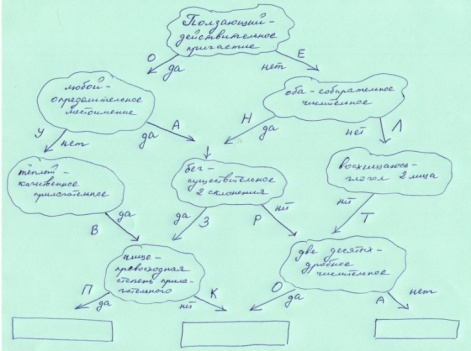 Ползающий-
действительное
причастие
О
да
Е
нет
любой-
определительное
местоимение
оба-собирательное
числительное
У
нет
А
да
Н
да
нет
Л
тёплый-
качественное
прилагательное
бег-
существительное
2 склонения
восхищаюсь-
глагол 2 лица
да
В
да
З
Р
нет
нет
Т
ниже-
превосходная
степень прила-
гательного
две десятых-
дробное
числительное
П
да
К
нет
О
да
А
нет